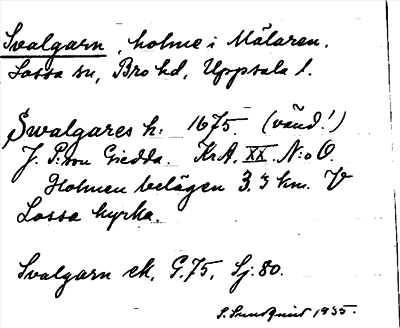 Svalgarn, holme i Mälaren.
Lossa sn, Bro hd, Uppsala l.
Swalgares h: 1675. (vänd!)
J. P:son Giedda. KrA, XX. N:o O.
Holmen belägen 3.3 km. V
Lossa kyrka.
Svalgarn ek. G.75, Sj. 80.
S. Sundquist 1935.